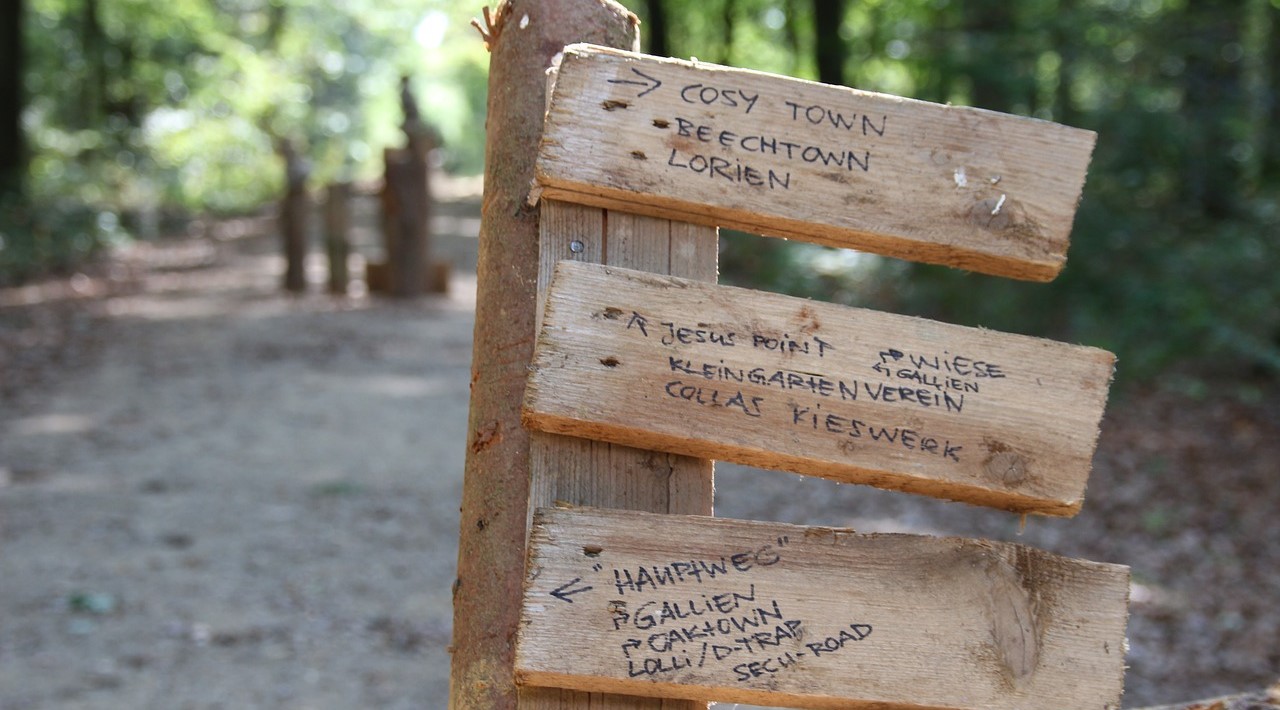 → COSY TOWN
BEECHTOWN
LORIEN
↑ JESUS POINT ↱ WIESE
↰ GALLIEN
KLEINGARTENVEREIN
COLLAS KIESWERK
← "HAUPTWEG"
↱ GALLIEN
↱ OAKTOWN
LOLLI/D-TRAP
SECH-ROAD